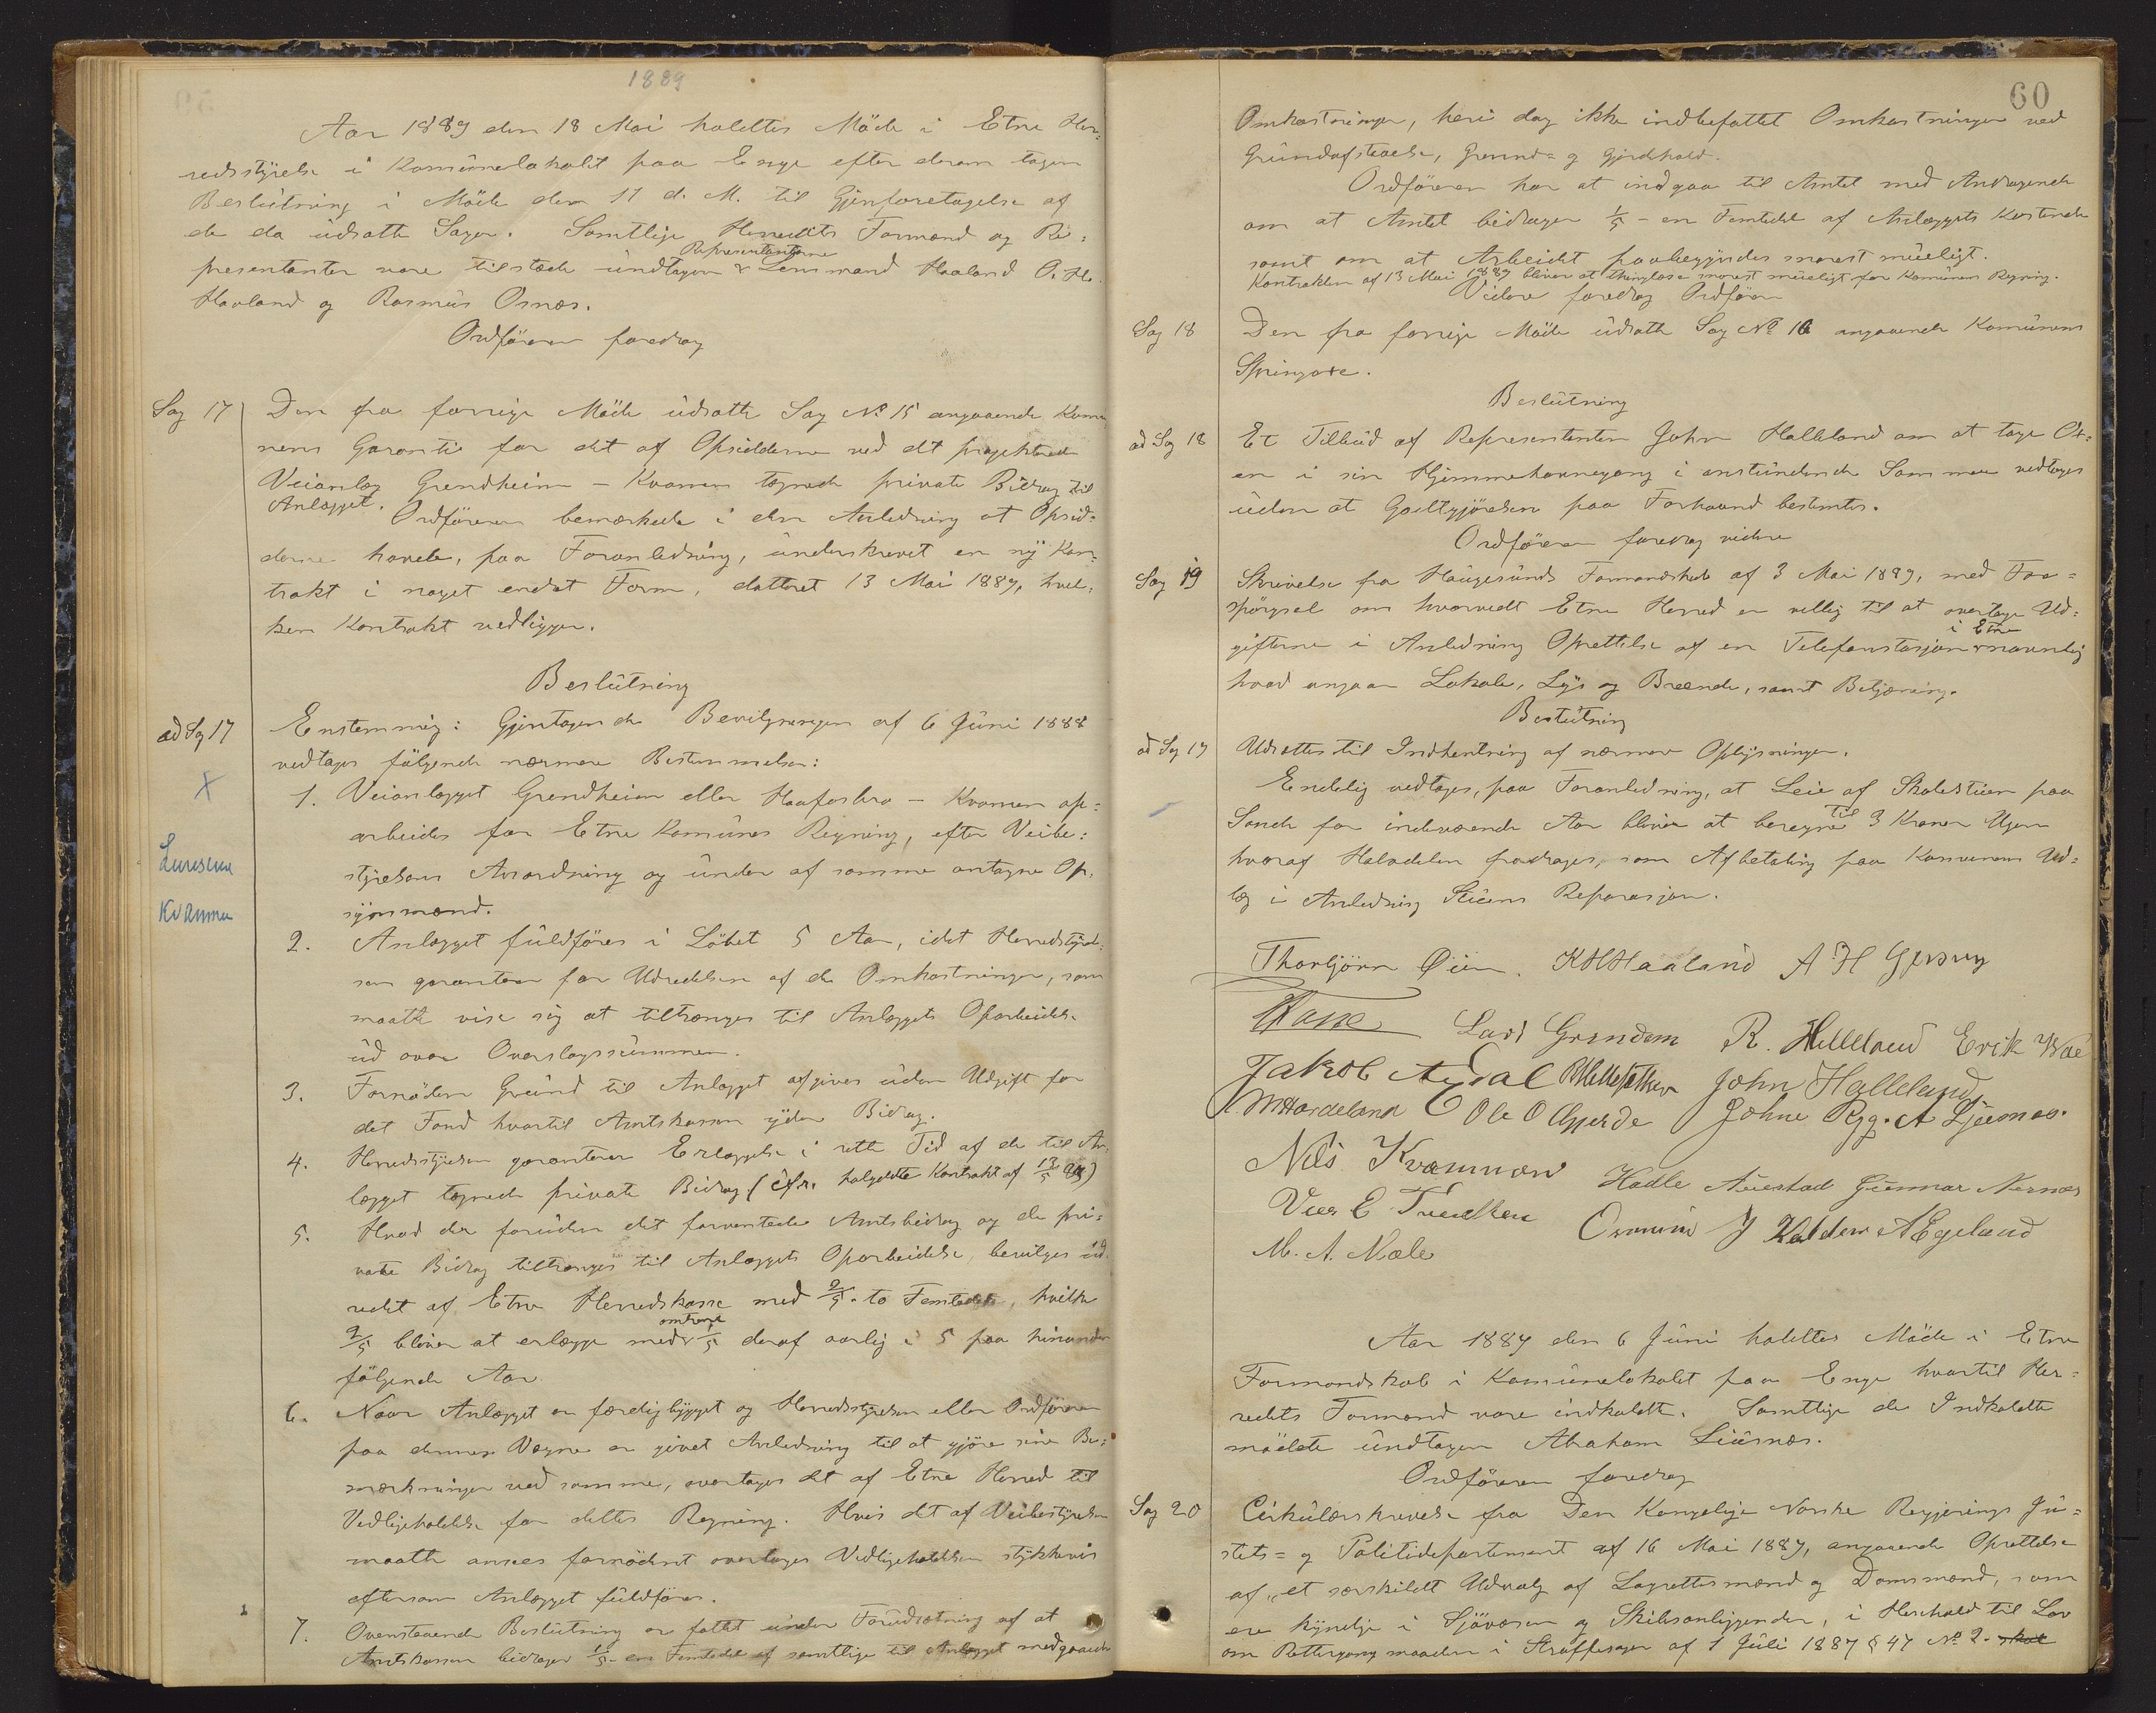 1889
Aar 1889 den 18 Mai holdtes Möde i Etne Her-
redsstyrelse i Komünelokalet paa Enge efter derom tagen
Beslütning i Möde den 11 d. M. til Gjenforetagelse af
de da üdsatte Sager. Samtlige Herredets Formænd og Re-
præsentanter vare tilstæde ündtagen Repræsentanterne Lensmand Haaland O. H.
Haaland og Rasmüs Osnæs.
Ordföreren foredrog
Sag 17
Den fra forrige Möde üdsatte Sag No 15 angaaende Komü
nens Garanti for det af Opsidderne ved det projekterede
Veianlæg Grendheim - Kvamen tegnede private Bidrag til
Anlægget.
Ordföreren bemærkede i den Anledning at Opsid-
derne havde, paa Foranledning, ünderskrevet en ny Kon-
trakt i noget endret Form, datteret 13 Mai 1889, hvil-
ken Kontrakt vedligger.
Beslütning
ad Sag 17
Enstemmig: Gjentagende Bevilgningen af 6 Jüni 1888
vedtages fölgende nærmere Bestemmelser:
1. Veianlægget Grendheim eller Haafosbro - Kvamen op-
arbeides for Etne Komünes Regning, efter Veibe-
styrelsens Anordning og ünder af samme antagne Op-
synsmænd.
Kvamen
2. Anlægget füldföres i Löbet 5 Aar, idet Herredsstyrel-
sen garanterer for Udredelsen af de Omkostninger, som
maatte vise sig at tiltrænges til Anlæggets Oparbeidelse
üd over Overslagssümmen.
3. Fornöden Gründ til Anlægget afgives üden Udgift for
det Fond hvortil Amtskassen yder Bidrag.
4. Herredsstyrelsen garanterer Erlæggelse i rette Tid af de til An-
lægget tegnede private Bidrag (cfr. Kontrakt af 13/5 89)
5. Hvad der forüden det forventede Amtsbidrag og de pri-
vate Bidrag tiltrænges til Anlæggets Oparbeidelse, bevilges üd-
redet af Etne Herredskasse med 2/5 - to Femtedele, hvilke
2/5 bliver at erlægge med omtrent 1/5 deraf aarlig i 5 paa hinanden
fölgende Aar.
6. Naar Anlægget er færdigbygget og Herredsstyrelsen eller Ordföreren
paa dennes Vegne er givet Anledning til at gjöre sine Be-
mærkninger ved samme, overtages det af Etne Herred til
Vedligeholdelse for dettes Regning. Hvis det af Veibestyrelsen
maatte ansees fornödent overtages Vedligeholdelsen stykkevis
eftersom Anlægget füldföres.
7. Ovenstaaende Beslütning er fattet ünder Forüdsætning af at
Amtskassen bidrager 1/5 - en Femtedel af samtlige til Anlægget medgaaende
60
Omkostninger, heri dog ikke indbefattet Omkostninger ved
Gründafstaaelse, Grund- og Gjerdehold.
Ordföreren har at indgaa til Amtet med Andragende
om at Amtet bidrager 1/5 - en Femtedel af Anlæggets Kostende
samt om at Arbeidet paabegyndes snarest müeligt.
Kontrakten af 13 Mai 1889 bliver at thinglæse snarest müeligt for Komünens Regning.
Videre foredrog Ordföreren
Sag 18
Den fra forrige Möde üdsatte Sag No 16 angaaende Komünens
Springoxe.
Beslütning
ad Sag 18
Et Tilbüd af Repræsentanten John Halleland om at tage Ox-
en i sin Hjemmehavnegang i anstündende Sommer vedtages
üden at Godtgjörelsen paa Forhaand bestemtes.
Ordföreren foredrog videre
Sag 19
Skrivelse fra Haügesünds Formandskab af 3 Mai 1889, med Fore-
spörgsel om hvorvidt Etne Herred er villig til at overtage Ud-
gifterne i Anledning Oprettelse af en Telefonstasjon i Etne navnlig
hvad angaar Lokale, Lys og Brænde, samt Betjening.
Beslütning
ad Sag 19
Udsættes til Indhentning af nærmere Oplysninger.
Endelig vedtages, paa Foranledning, at Leie af Skolestüen paa
Sande for indeværende Aar bliver at beregne til 3 Kroner Ugen
hvoraf Halvdelen fradrages, som Afbetaling paa Komünens Ud-
læg i Anledning Stüens Reparasjon.
Thorbjörn Öien. K H Haaland A H Gjerug
Lars Grindem R. Helleland Erik Wae
Jakob John Halleland
Hardeland Ole O Gjerde Johne Rygg. A Ljüsnæs.
Nils Kvammen Hadle Aüestad Günnar Nernæs
Omünd J Kalder A Egeland
M. A. Mæle
Aar 1889 den 6 Jüni holdtes Möde i Etne
Formandskab i Komünelokalet paa Enge hvortil Her-
redets Formænd vare indkaldte. Samtlige de Indkaldte
mödte ündtagen Abraham Liüsnæs.
Ordföreren foredrog
Sag 20
Cirkülærskrivelse fra Den Kongelige Norske Regjerings Jü-
stits- og Politidepartement af 16 Mai 1889, angaaende Oprettelse
af "et særskildt Udvalg af Lagrettesmænd og Domsmænd, som
ere kyndige i Sjövæsen og Skibsanliggender, i Henhold til Lov
om Rettergangsmaaden i Straffesager af 1 Jüli 1887 § 47 No 2.